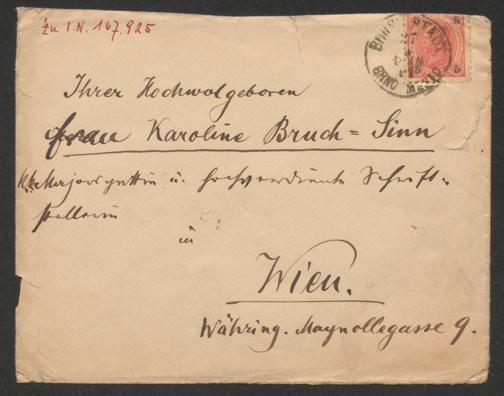 Zu I.N. 167.925
BRÜNN STADT
BRNO MĚSTO
5 5
Ihrer Hochwolgeboren
Frau Karoline Bruch-Sinn
k.k. Majorsgattin u. hochverdiente Schrift-
stellerin
in
Wien.
Währing. Maynollegasse 9.